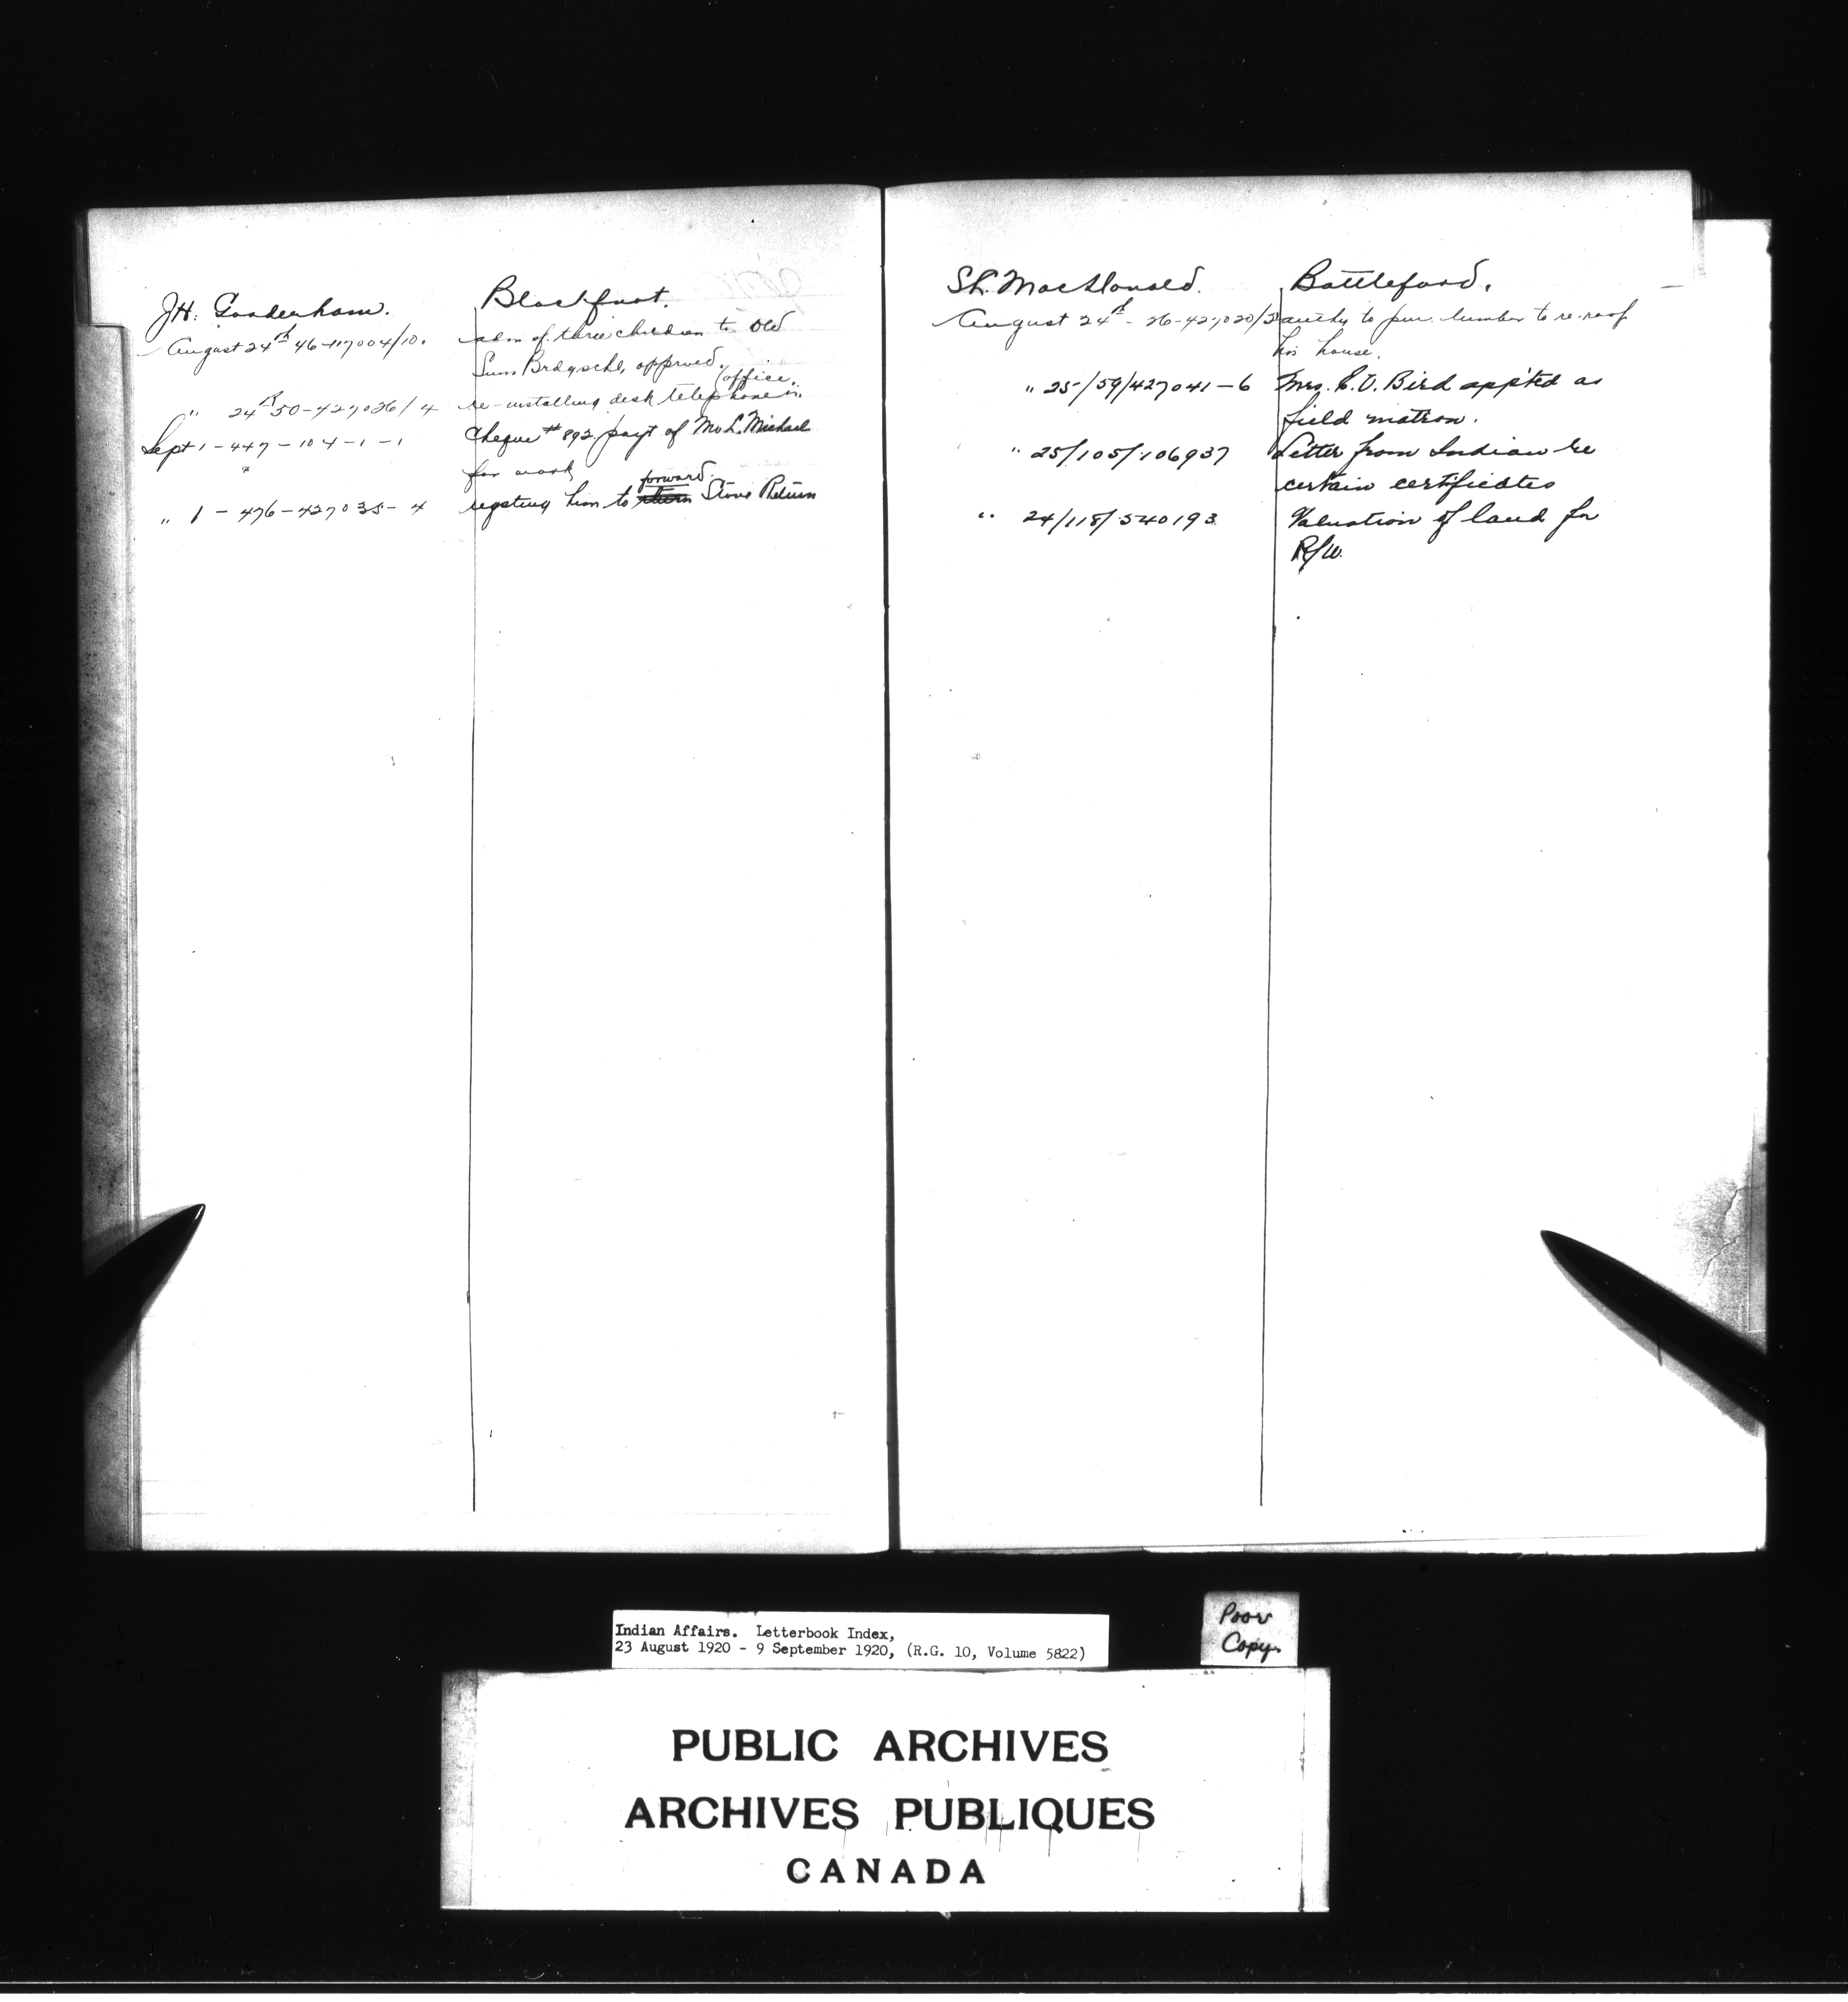 J.H. Gooderham. Blackfoot.
August 24th 46-117004/10. adm of three children to Old
Sun's Brdg schl, approved.
" 24th 50-427026/4 re-installing desk telephone in (office.
Sept 1-447-104-1-1 Cheque #892 payt of Mr L. Michael
for work
" 1-476-427035-4 regsting him to return forward Stove Return
S.L. MacDonald. Battleford.
August 24th - 26-427020/3 authy to pur. lumber to re-roof
his house.
" 25/59/427041-6 Mrs. E.V. Bird app'ted as
field matron.
" 25/105/106937 Letter from Indian re
certain certificates
" 24/118/540193 Valuation of land for
R/W.
Indian Affairs. Letterbook Index,
23 August 1920 - 9 September 1920, (R.G. 10, Volume 5822)
Poor
Copy
PUBLIC ARCHIVES
ARCHIVES PUBLIQUES
CANADA